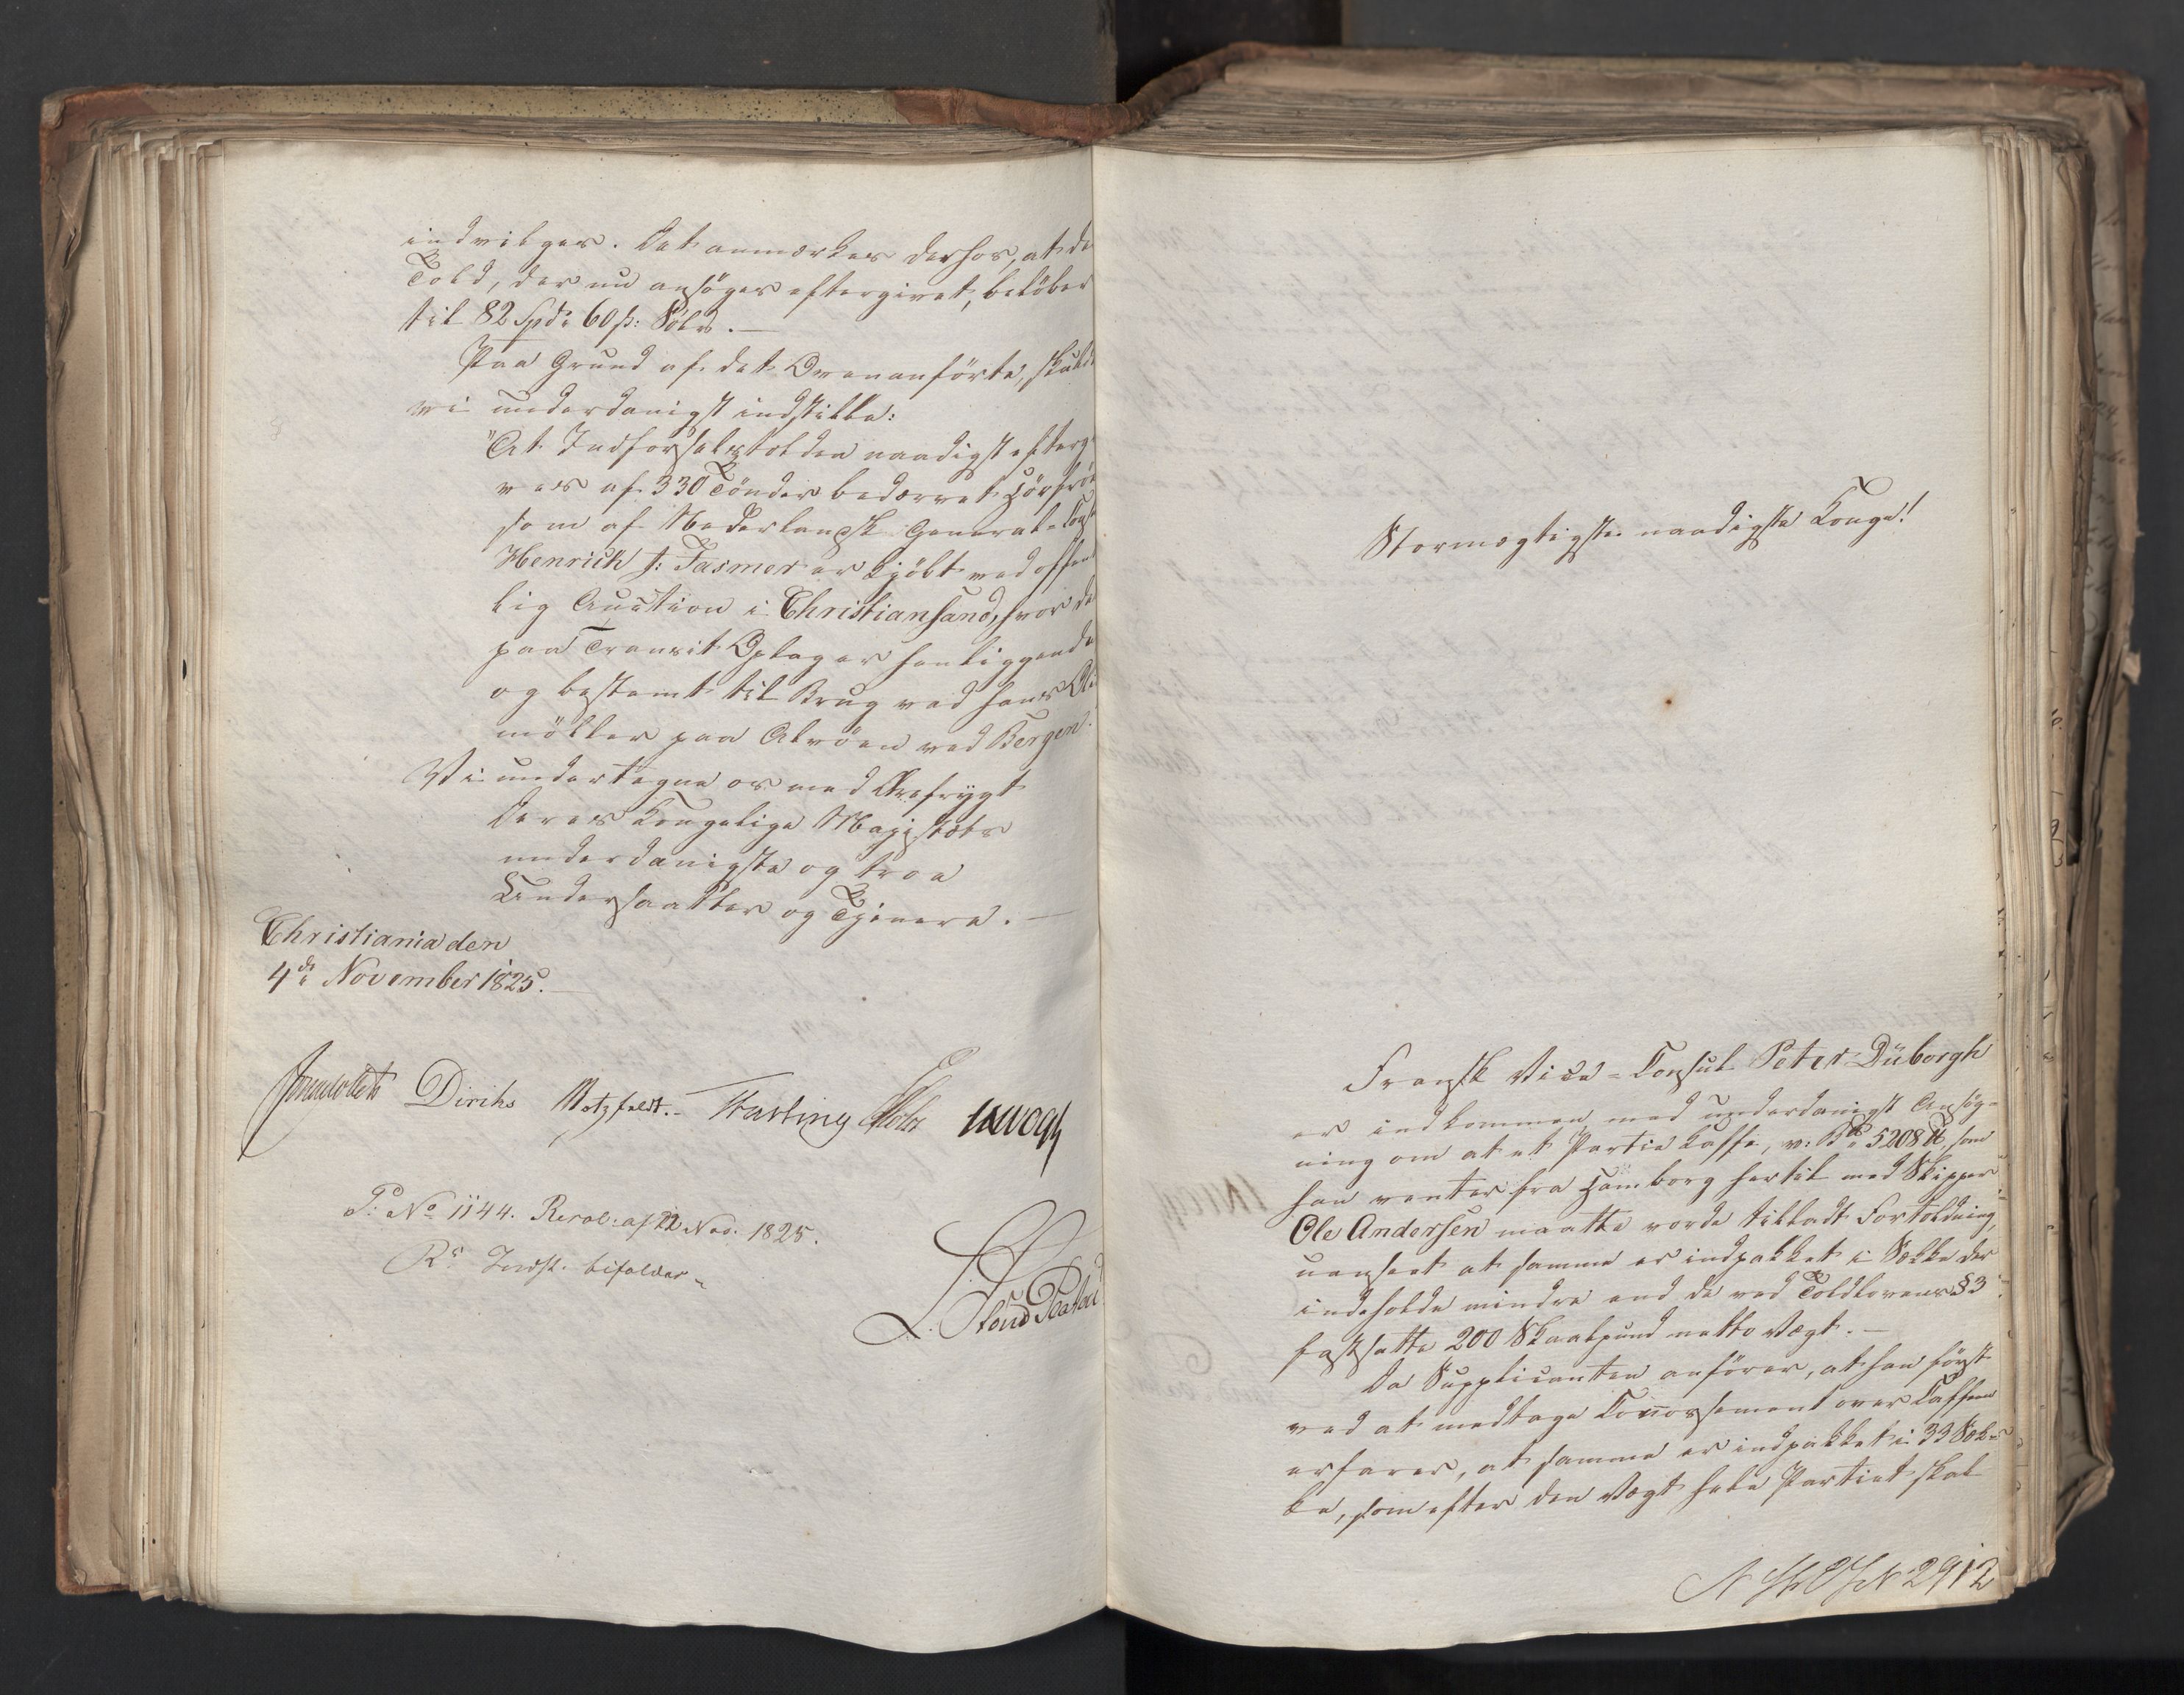 indvilges. Det anmærkes derhos, at de
Told, der nu ansøges eftergivet, beløber
til 82 Spd: 60 ß: Sølv. —
Paa Grund af det Ovenanförte, skulde
vi underdanigst indstille:
"At Indførselstolden naadigst efterg
ves af 330 Tönder bedærvet Hörfrö
som af Nederlandsk General-Cons
Henrich J: Fasmer er kjöbt ved offent
lig Auction i Christiansand, hvor de
paa Transit Oplag er henliggende
og bestemt til Brug ved hans Olie
möller paa Alvöen ved Bergen.
Vi undertegne os med Ærefrygt
Deres Kongelige Majestæts
underdanigste og troe
Undersaatter og Tjenere. —
Christiania den
4de November 1825. —
Diriks Motzfeldt. Fasting Holst
P: No 1144. Resol: af 22 Nov. 1825.
Rs Indst. bifaldes
Stormægtigste naadigste Konge!
Fransk Vice-Consul Peter Düborgh
er indkommen med underdanigst Ansøg-
ning om at et Partie Kaffe, v: Bto 5208 ℔, som
han venter fra Hamborg hertil med Skipper
Ole Andersen maatte vorde tilladt Fortoldning,
uanseet at samme er indpakket i Sække der
indeholde mindre end de ved Toldlovens § 3
fastsatte 200 Skaalpund netto Vægt. —
Da Supplicanten anförer, at han först
ved at modtage Connossement over Caffeen
erfarer, at samme er indpakket i 33 Sæk-
ke, som efter den Vægt hele Partiet skal
2912